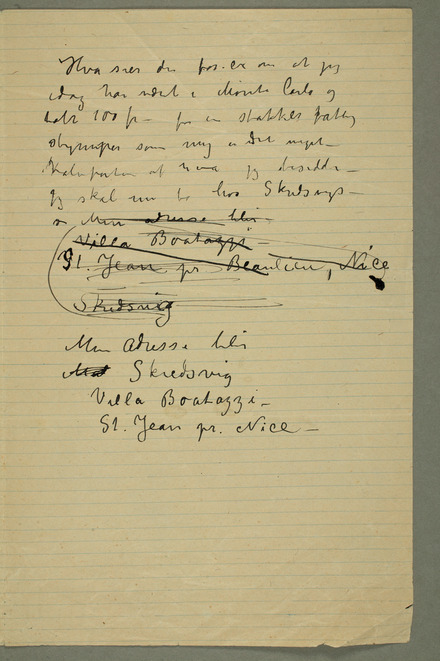 Hva sier du for ex om at jeg
idag har vært i Monte Carlo og
tabt 100 fr – for en stakkels fattig
som mig er det meget –
af hvad jeg
Jeg skal nu bo hos Skredsvigs –
Min adresse blir
Villa Boatazzi
St. Jean pr Beaulieu, Nice
Skredsvig
Min adresse blir
Skredsvig
Villa Boatazzi –
St. Jean pr. Nice –